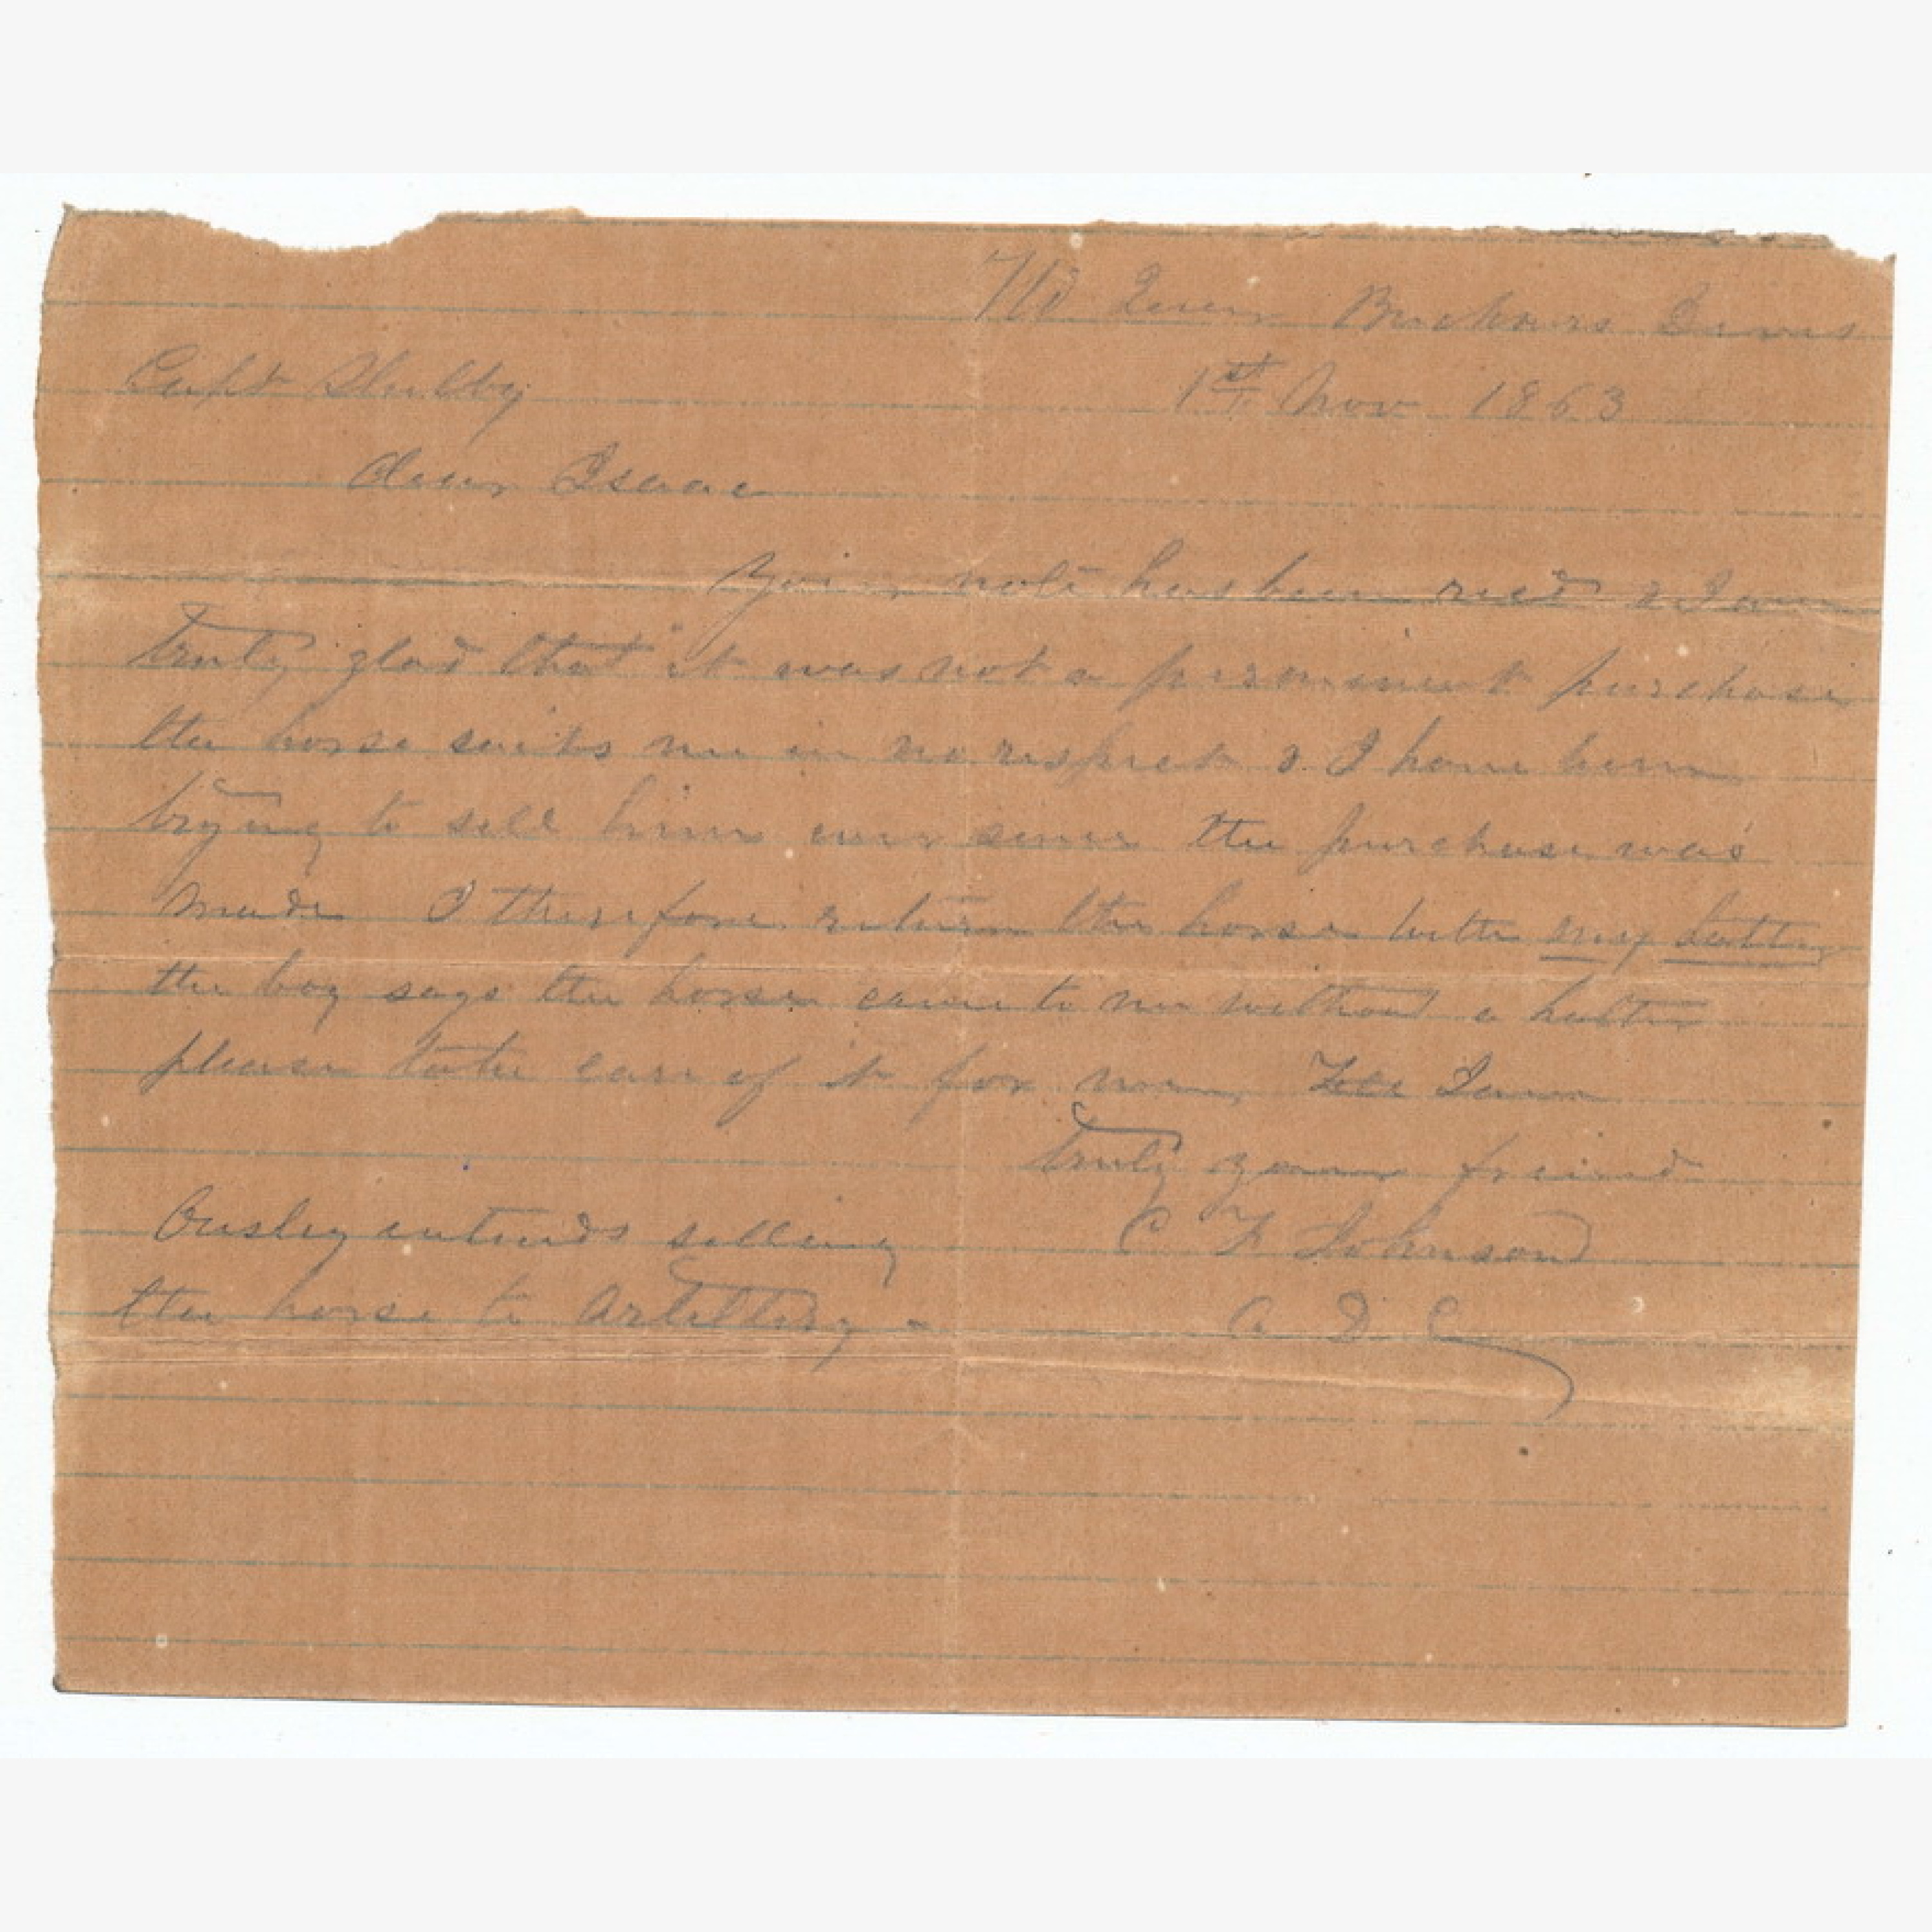 Hd Qurs Buckners Divis
Capt Shelby 1st Nov 1863
dear Isaac
Your note has been recd & I am
truly glad that it was not a permanent purchase
the horse suits me in no respect & I have been
trying to sell him ever since the purchase was
made I therefore return the horse with my halter
the boy says the horse came to me without a halter
please take care of it for me, I am
truly your friend
Ousley intends selling C F Johnson
the horse to Artillery - A D C